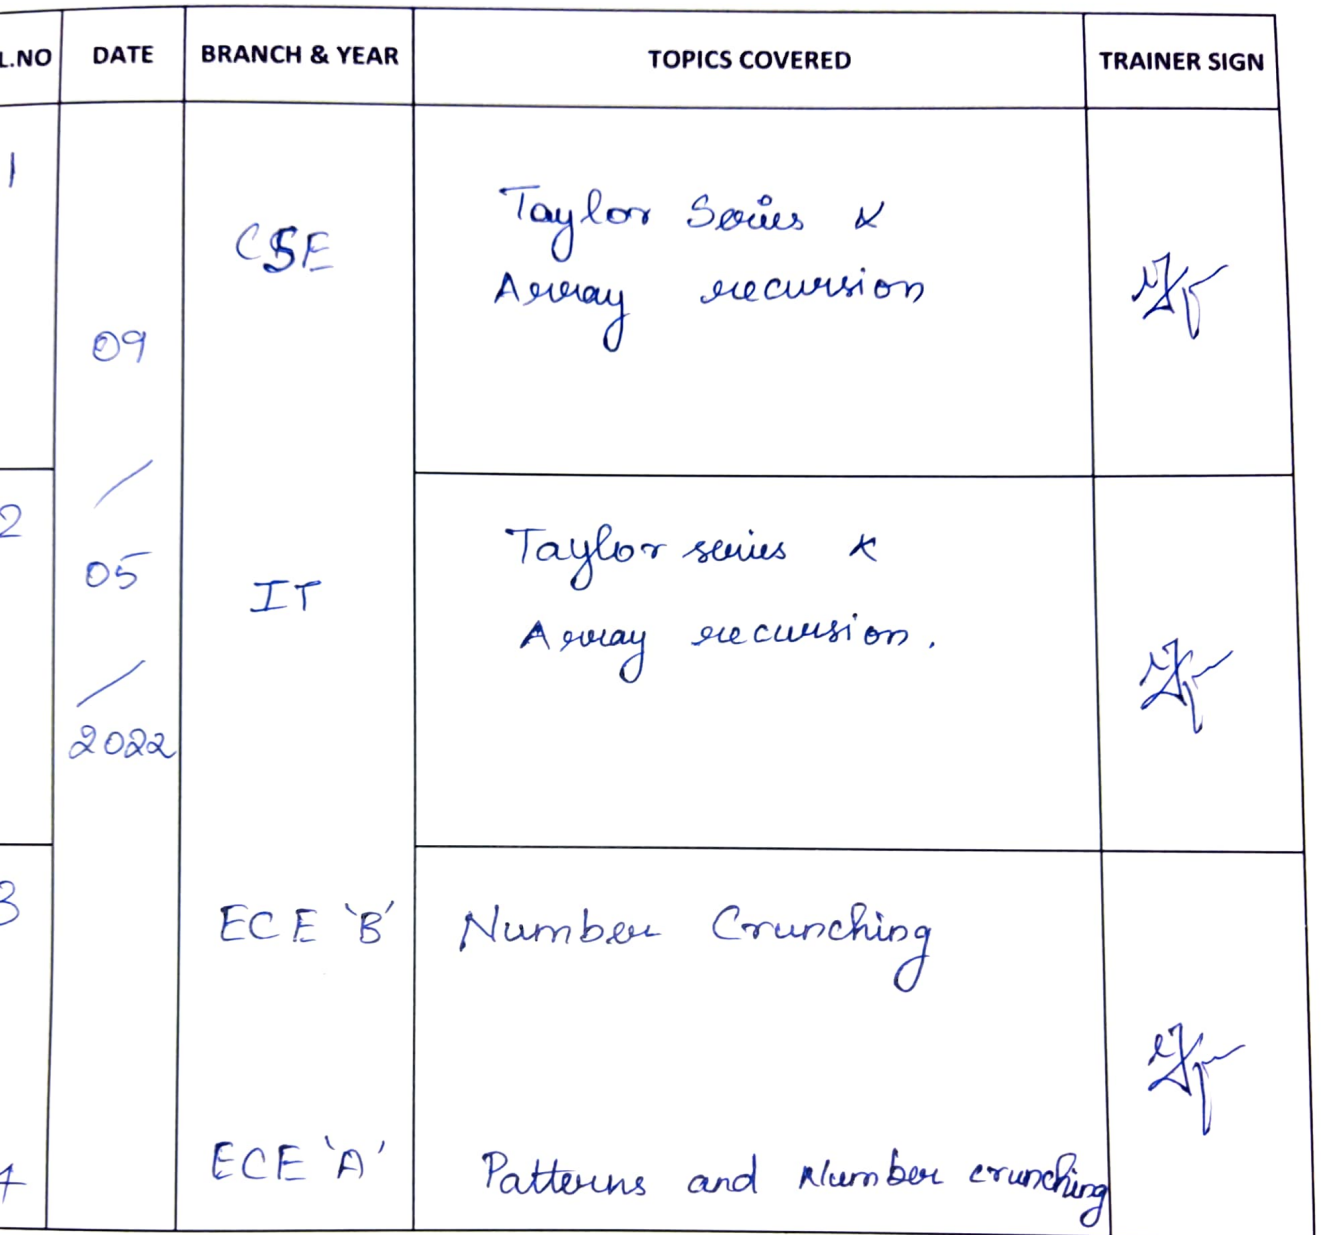 L.NO DATE BRANCH & YEAR TOPICS COVERED TRAINER SIGN
1
CSE
Taylor Series &
Array recursion
09
/
05
/
2022
2
IT
Taylor series &
Array recursion.
3
ECE 'B' Number Crunching
4
ECE 'A' Patterns and Number crunching